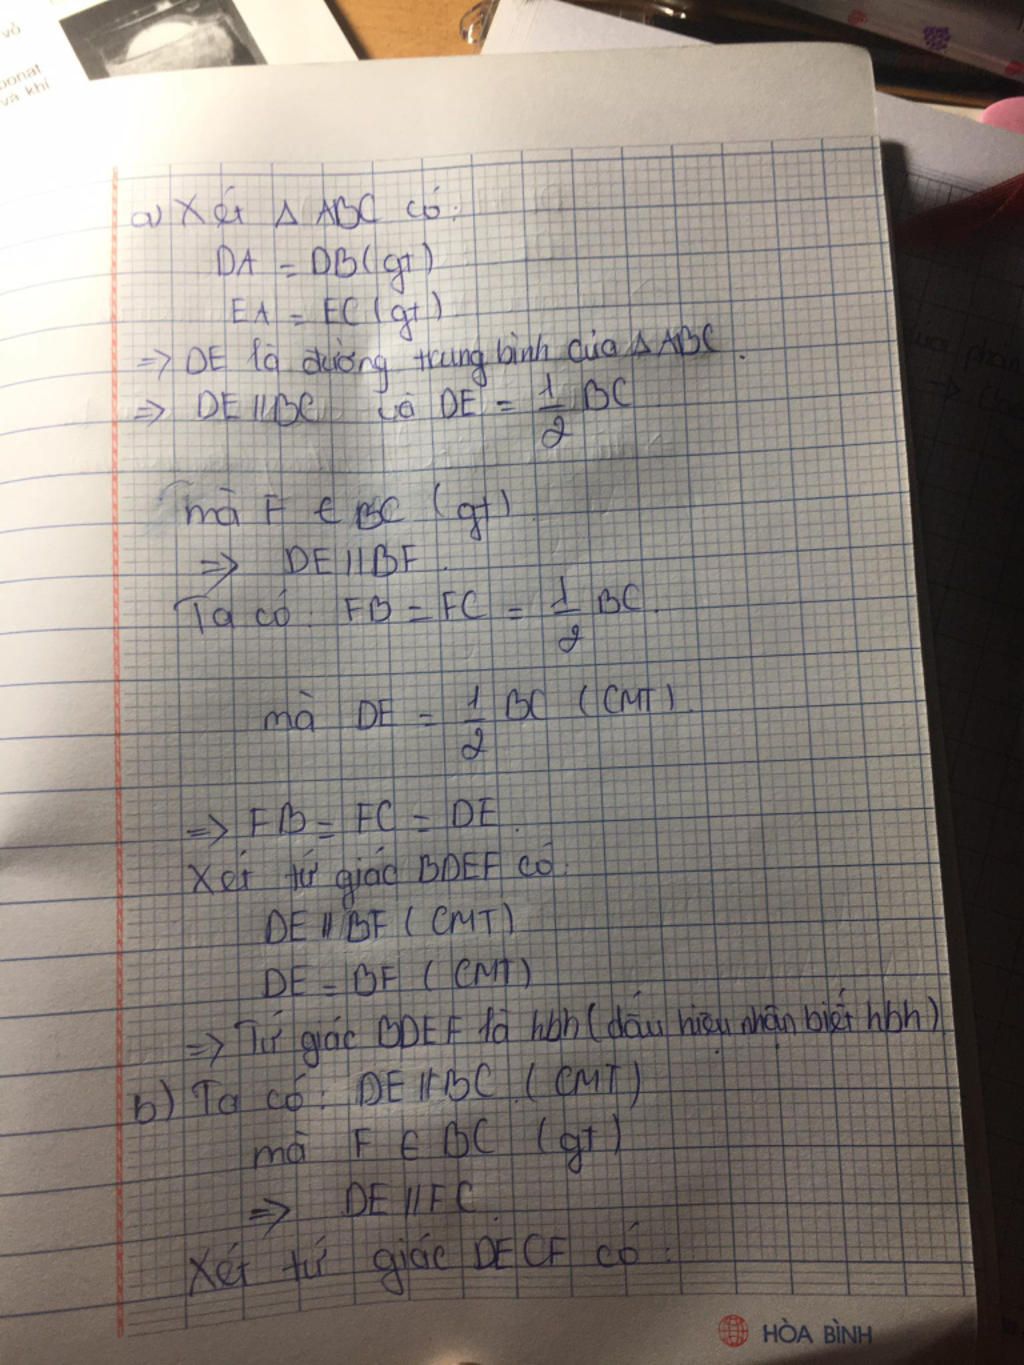 vỏ
bonat
và khí
a) Xét Δ ABC có:
DA = DB (gt)
EA = EC (gt)
=> DE là đường trung bình của Δ ABC.
=> DE // BC và DE = 1/2 BC
mà F ∈ BC (gt)
=> DE // BF.
Ta có: FB = FC = 1/2 BC.
mà DE = 1/2 BC (CMT).
=> FB = FC = DE.
Xét tứ giác BDEF có:
DE // BF (CMT)
DE = BF (CMT)
=> Tứ giác BDEF là hbh (dấu hiệu nhận biết hbh)
b) Ta có: DE // BC. (CMT)
mà F ∈ BC (gt)
=> DE // FC.
Xét tứ giác DECF có:
HÒA BÌNH